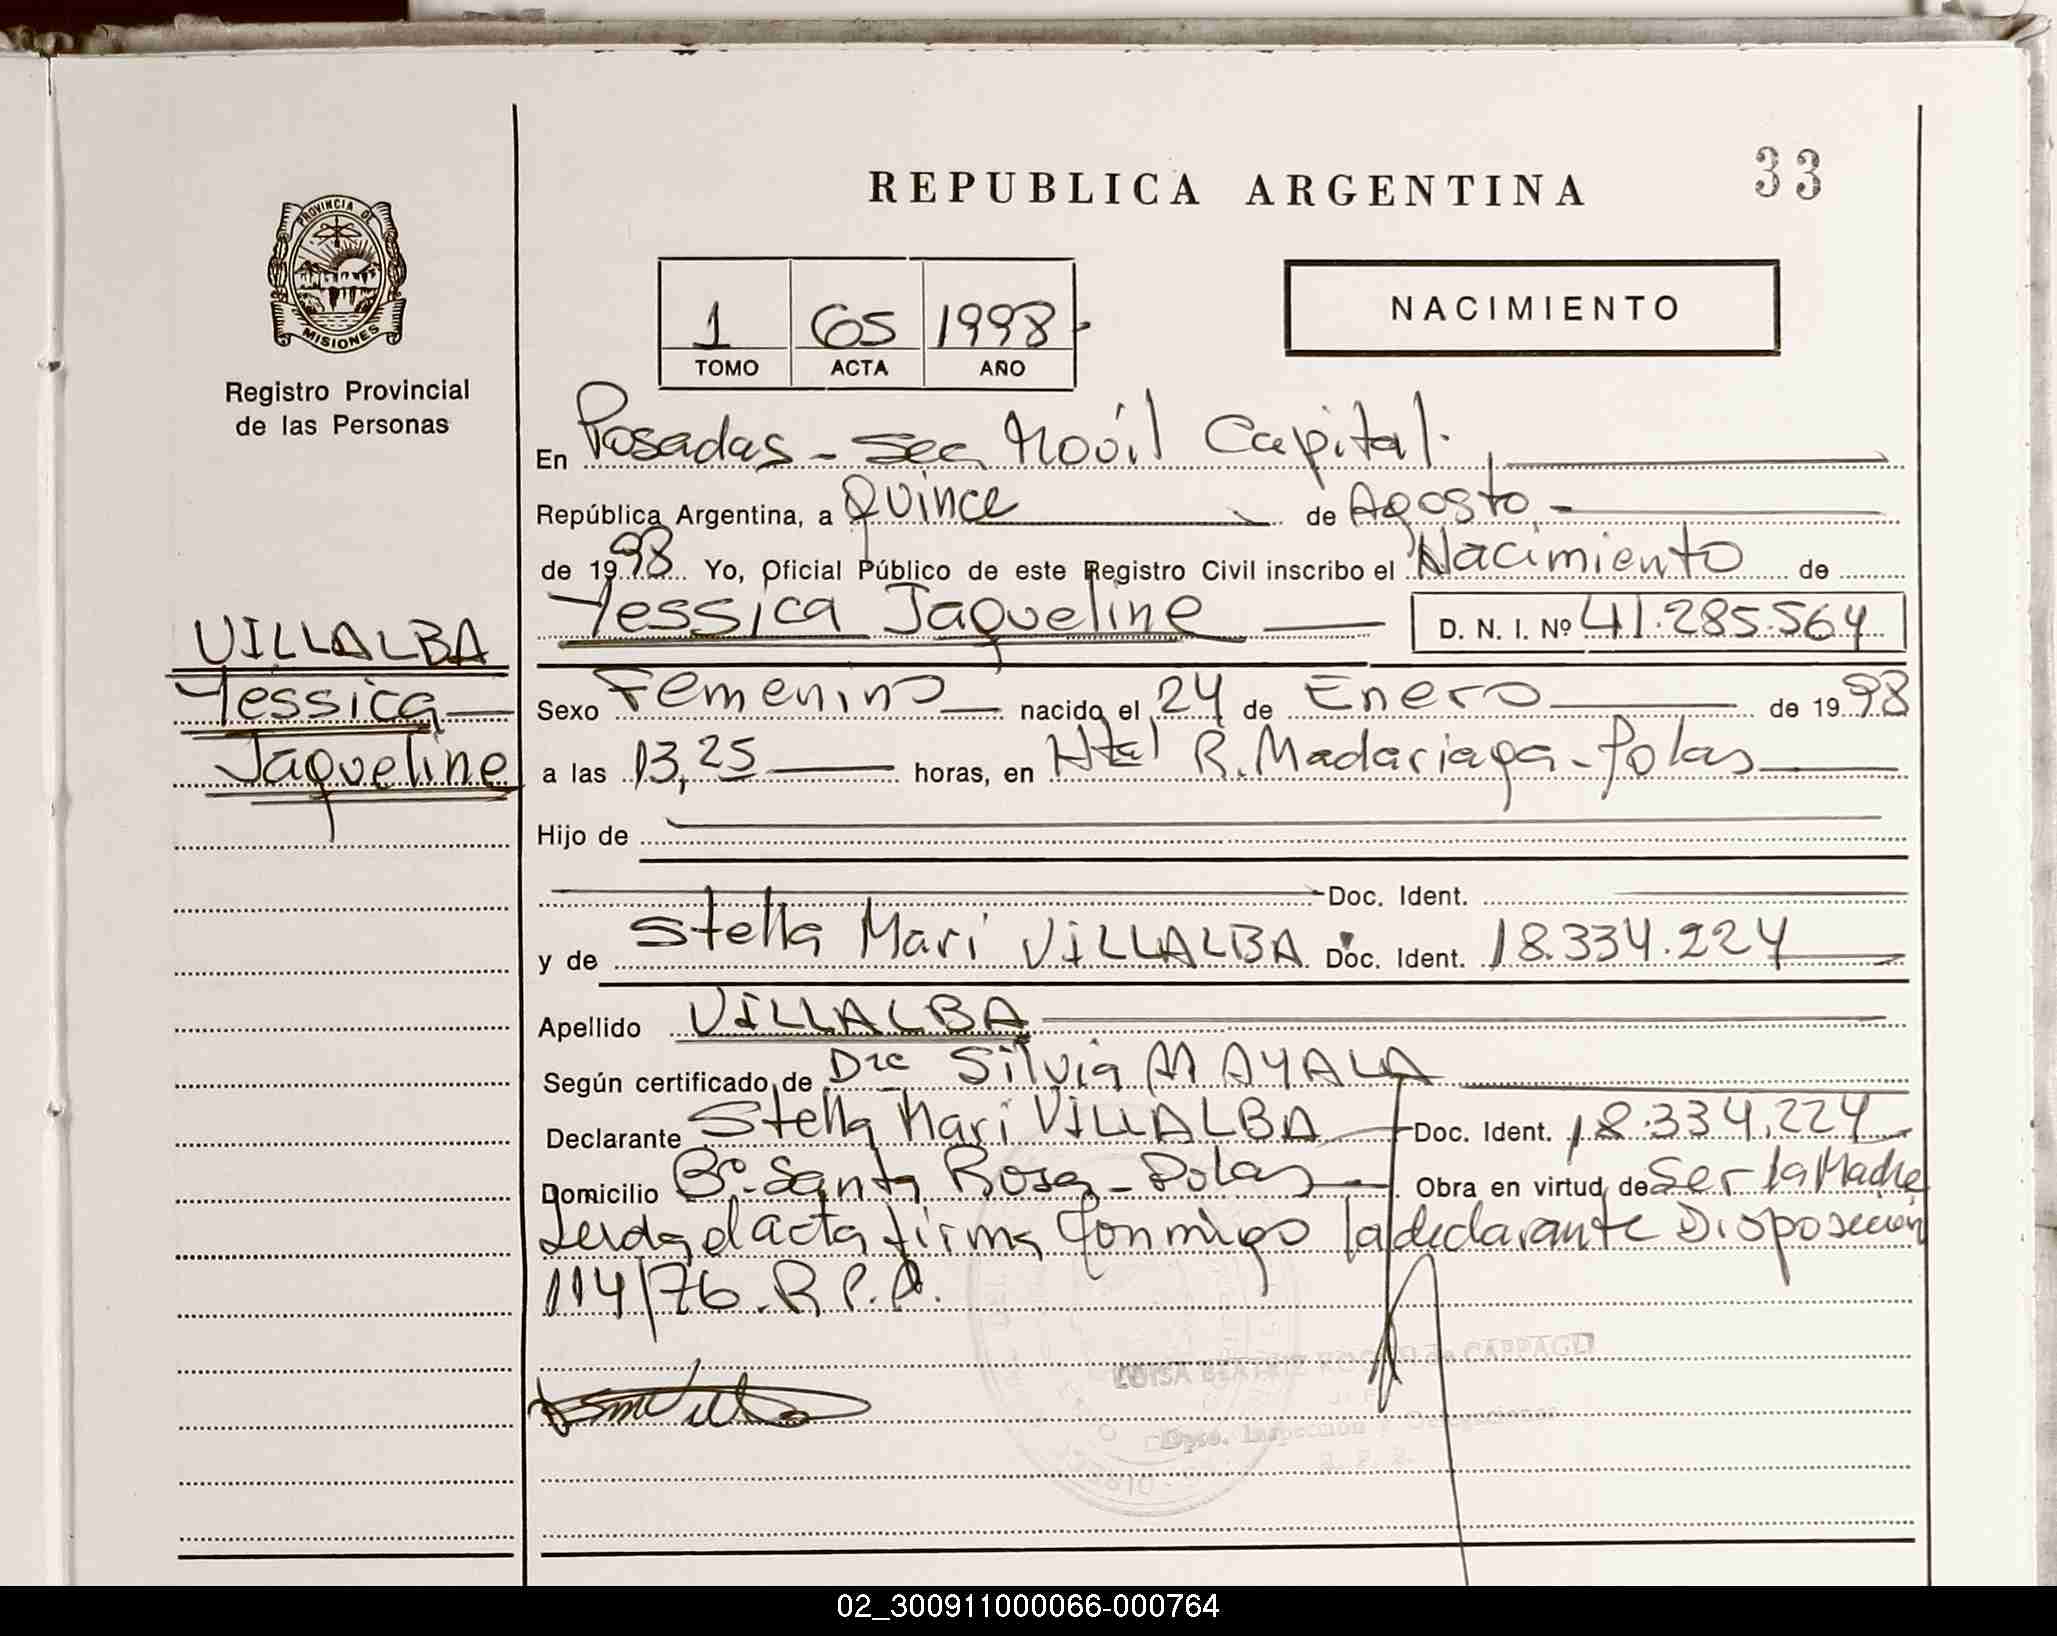 33
REPUBLICA ARGENTINA
PROVINCIA DE
MISIONES
NACIMIENTO
1 65 1998
TOMO ACTA AÑO
Registro Provincial
de las Personas
En Posadas - Sec Móvil Capital.
República Argentina, a Quince de Agosto
de 1998 Yo, Oficial Público de este Registro Civil inscribo el Nacimiento de
Yessica Jaqueline D. N. I. Nº 41.285.564
VILLALBA
Yessica
Jaqueline
Sexo Femenino nacido el 24 de Enero de 1998
a las 13,25 horas, en Htal R. Madariaga - Pdas
Hijo de
Doc. Ident.
y de Stella Mari VILLALBA Doc. Ident. 18.334.224
Apellido VILLALBA
Según certificado de Dra Silvia M AYALA
Declarante Stella Mari VILLALBA Doc. Ident. 18.334.224
Domicilio Bº Santa Rosa - Pdas Obra en virtud de Ser la Madre
Leida el acta firma conmigo la declarante Disposición
114/76. R.P.P.
LUISA BEATRIZ de
Dpto. Inspección y Delegaciones
R. P. P.
02_300911000066-000764